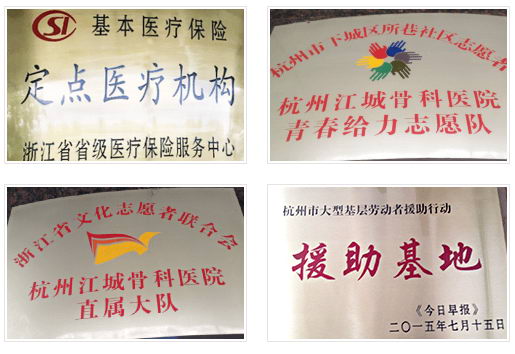 CSI 基本医疗保险
定点医疗机构
浙江省省级医疗保险服务中心
杭州市下城区所巷社区志愿者
杭州江城骨科医院
青春给力志愿队
浙江省文化志愿者联合会
杭州江城骨科医院
直属大队
杭州市大型基层劳动者援助行动
援助基地
《今日早报》
二〇一五年七月十五日